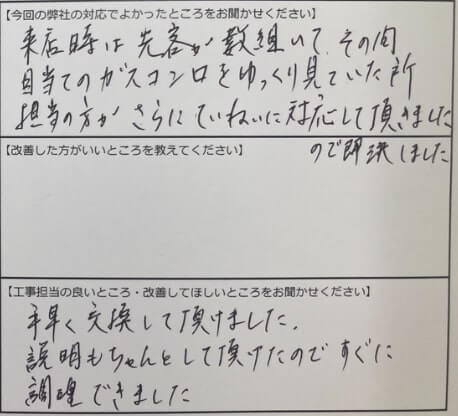 【今回の弊社の対応でよかったところをお聞かせください】
来店時は先客が数組いて、その間
目当てのガスコンロをゆっくり見ていた所
担当の方がさらにていねいに対応して頂きました
ので即決しました
【改善した方がいいところを教えてください】
【工事担当の良いところ・改善してほしいところをお聞かせください】
手早く交換して頂けました.
説明もちゃんとして頂けたのですぐに
調理できました